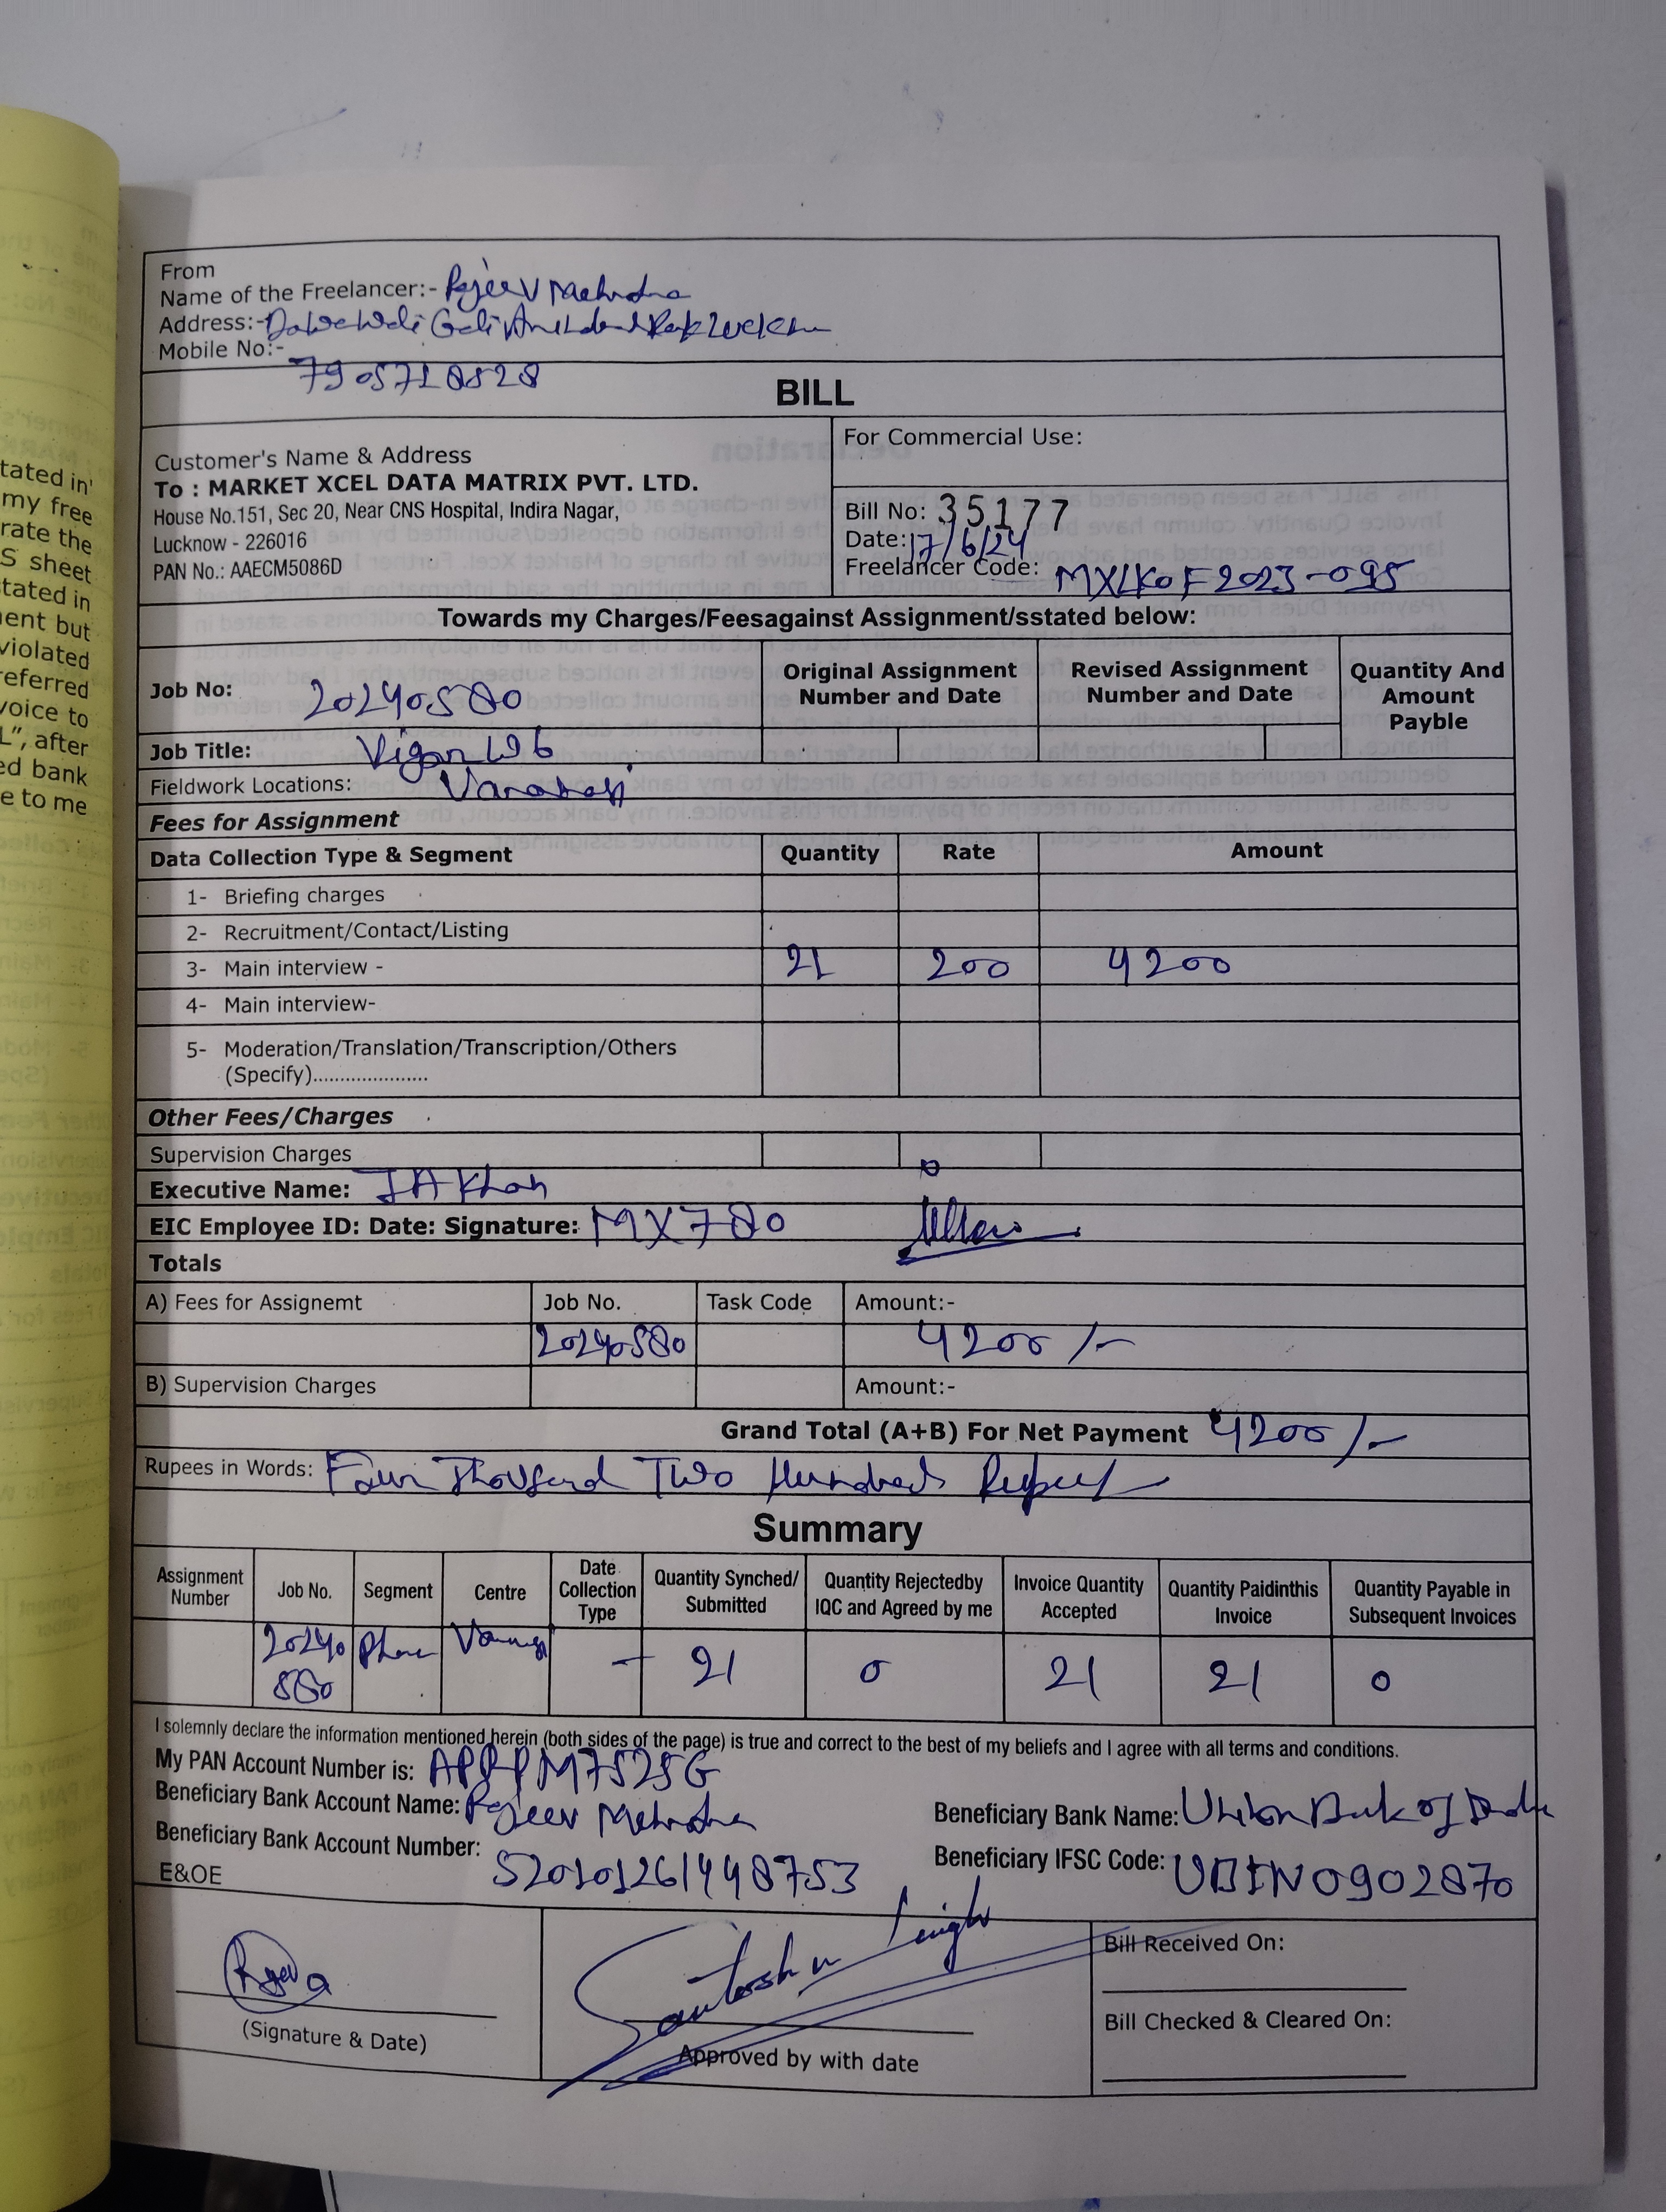 From
Name of the Freelancer:- Rajeev Mehrotra
Address:-
Mobile No:-
7905710528
BILL
Customer's Name & Address
To : MARKET XCEL DATA MATRIX PVT. LTD.
House No.151, Sec 20, Near CNS Hospital, Indira Nagar,
Lucknow - 226016
PAN No.: AAECM5086D
For Commercial Use:
Bill No: 35177
Date: 17/6/24
Freelancer Code: MXLKOF2023-095
Towards my Charges/Feesagainst Assignment/sstated below:
Job No: 20240580
Original Assignment Number and Date
Revised Assignment Number and Date
Quantity And Amount Payble
Job Title: W6
Fieldwork Locations: Varanasi
Fees for Assignment
Data Collection Type & Segment Quantity Rate Amount
1- Briefing charges
2- Recruitment/Contact/Listing
3- Main interview - 21 200 4200
4- Main interview-
5- Moderation/Translation/Transcription/Others
(Specify).....................
Other Fees/Charges
Supervision Charges
Executive Name: JA Khan
EIC Employee ID: Date: Signature: MX780
Totals
A) Fees for Assignemt Job No. Task Code Amount:-
20240580 4200/-
B) Supervision Charges Amount:-
Grand Total (A+B) For Net Payment 4200/-
Rupees in Words: Four Thousand Two Hundred Rupees
Summary
Assignment Number Job No. Segment Centre Date Collection Type Quantity Synched/ Submitted Quantity Rejectedby IQC and Agreed by me Invoice Quantity Accepted Quantity Paidinthis Invoice Quantity Payable in Subsequent Invoices
20240580 Varanasi - 21 0 21 21 0
I solemnly declare the information mentioned herein (both sides of the page) is true and correct to the best of my beliefs and I agree with all terms and conditions.
My PAN Account Number is:
Beneficiary Bank Account Name: Rajeev Mehrotra
Beneficiary Bank Name: Union Bank of India
Beneficiary Bank Account Number: 520101261448753
Beneficiary IFSC Code: UBIN0902870
E&OE
Santosh Singh
(Signature & Date)
Approved by with date
Bill Received On:
Bill Checked & Cleared On: